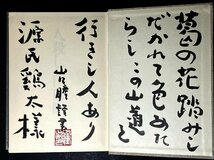 葛の花踏みし
だかれて色あた
らしこの山道を
行きし人あり
山口瞳
源氏鶏太様